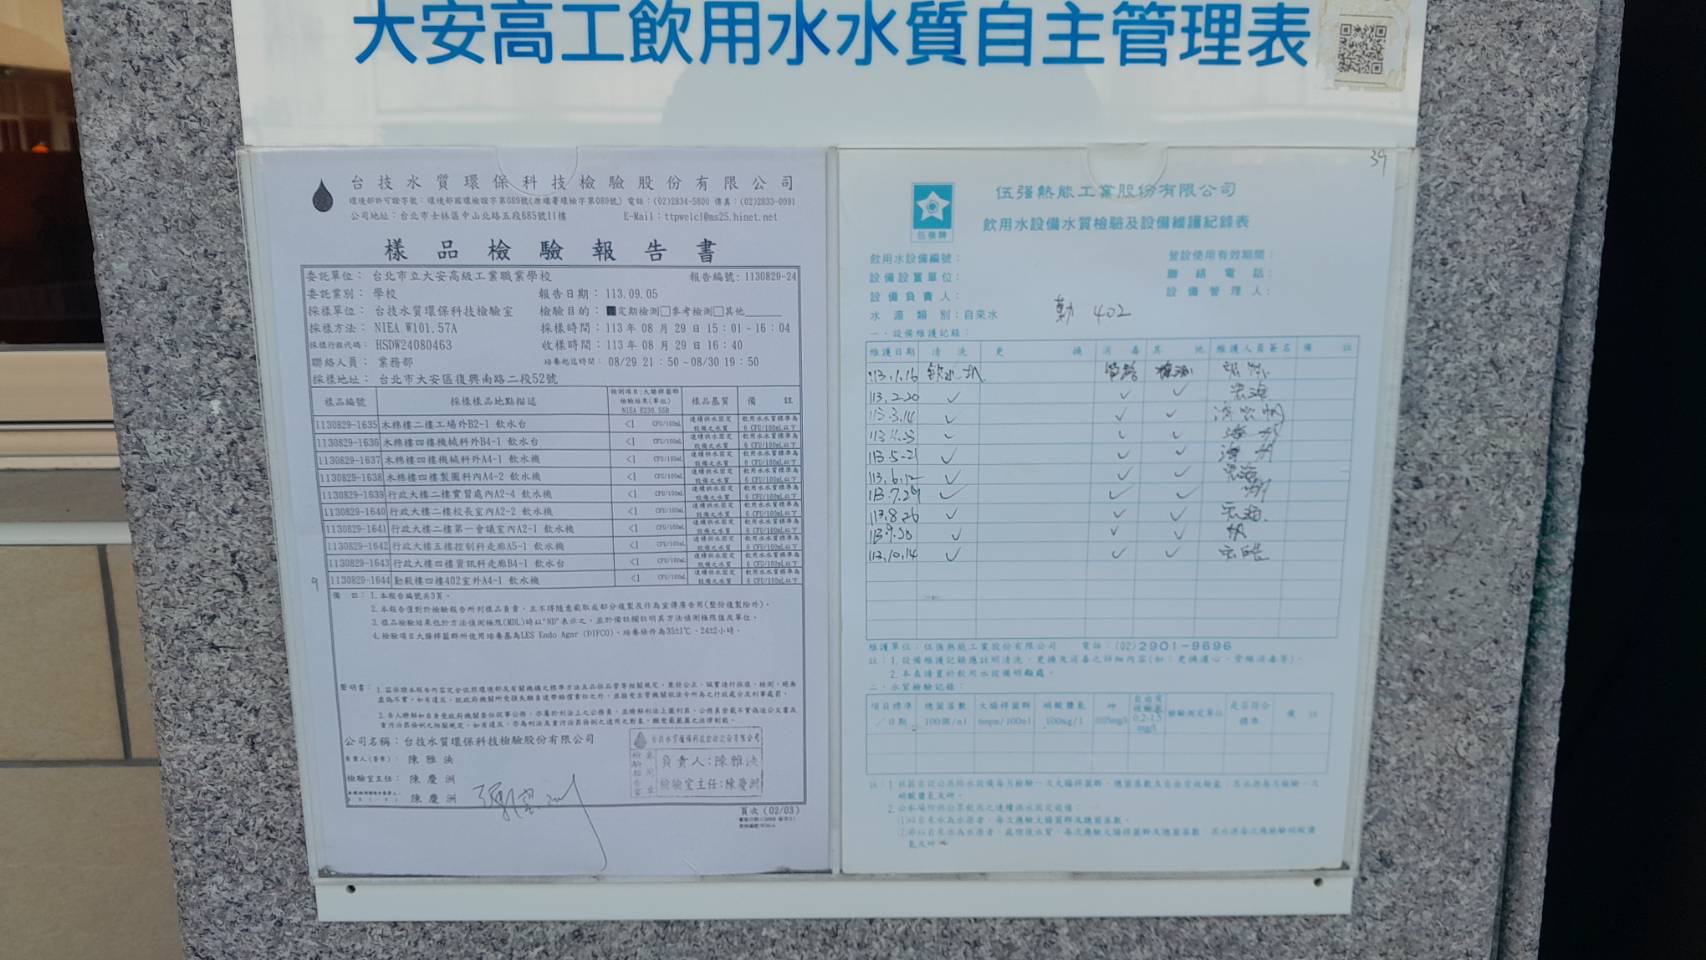 大安高工飲用水水質自主管理表
台技水質環保科技檢驗股份有限公司
環境部許可證字號：環境部國環檢證字第089號(原環署環檢字第089號) 電話：(02)2834-5800 傳真：(02)2833-0991
公司地址：台北市士林區中山北路五段685號11樓 E-Mail：ttpwelcl@ms25.hinet.net
樣品檢驗報告書
委託單位： 台北市立大安高級工業職業學校 報告編號：1130829-24
委託業別： 學校 報告日期：113.09.05
採樣單位： 台技水質環保科技檢驗室 檢驗目的：■定期檢測□參考檢測□其他
採樣方法： NIEA W101.57A 採樣時間：113 年 08 月 29 日 15：01～16：04
採樣行程代碼： HSDW24080463 收樣時間：113 年 08 月 29 日 16：40
聯絡人員： 業務部 培養起迄時間：08/29 21：50～08/30 19：50
採樣地址： 台北市大安區復興南路二段52號
樣品編號 採樣樣品地點描述 檢測項目:大腸桿菌群 檢驗結果(單位) NIEA E230.55B 樣品基質 備 註
1130829-1635 木棉樓二樓工場外B2-1 飲水台 <1 CFU/100mL 連續供水固定設備之水質 飲用水水質標準為6 CFU/100mL以下
1130829-1636 木棉樓四樓機械科外B4-1 飲水台 <1 CFU/100mL 連續供水固定設備之水質 飲用水水質標準為6 CFU/100mL以下
1130829-1637 木棉樓四樓機械科外A4-1 飲水機 <1 CFU/100mL 連續供水固定設備之水質 飲用水水質標準為6 CFU/100mL以下
1130829-1638 木棉樓四樓製圖科內A4-2 飲水機 <1 CFU/100mL 連續供水固定設備之水質 飲用水水質標準為6 CFU/100mL以下
1130829-1639 行政大樓二樓實習處內A2-4 飲水機 <1 CFU/100mL 連續供水固定設備之水質 飲用水水質標準為6 CFU/100mL以下
1130829-1640 行政大樓二樓校長室內A2-2 飲水機 <1 CFU/100mL 連續供水固定設備之水質 飲用水水質標準為6 CFU/100mL以下
1130829-1641 行政大樓二樓第一會議室內A2-1 飲水機 <1 CFU/100mL 連續供水固定設備之水質 飲用水水質標準為6 CFU/100mL以下
1130829-1642 行政大樓五樓控制科走廊A5-1 飲水機 <1 CFU/100mL 連續供水固定設備之水質 飲用水水質標準為6 CFU/100mL以下
1130829-1643 行政大樓四樓資訊科走廊B4-1 飲水台 <1 CFU/100mL 連續供水固定設備之水質 飲用水水質標準為6 CFU/100mL以下
1130829-1644 勤毅樓四樓402室外A4-1 飲水機 <1 CFU/100mL 連續供水固定設備之水質 飲用水水質標準為6 CFU/100mL以下
9
備 註：1.本報告編號共3頁。
2.本報告僅對於檢驗報告所列樣品負責，且不得隨意截取或部分複製及作為宣傳廣告用(整份複製除外)。
3.樣品檢驗結果低於方法偵測極限(MDL)時以"ND"表示之，並於備註欄註明其方法偵測極限值及單位。
4.檢驗項目大腸桿菌群所使用培養基為LES Endo Agar (DIFCO)、培養條件為35±1℃、24±2小時。
聲明書：
公司名稱：台技水質環保科技檢驗股份有限公司
負責人(簽章)： 陳雅泱
檢驗室主任： 陳慶洲
陳慶洲
台技水質環保科技檢驗股份有限公司
負責人：陳雅泱
檢驗室主任：陳慶洲
頁次 (02/03)
39
伍強牌
伍强熱能工業股份有限公司
飲用水設備水質檢驗及設備維護紀錄表
飲用水設備編號： 營設使用有效期間：
設備設置單位： 聯絡電話：
設備負責人： 設備管理人：
水源類別：自來水 勤 402
一、設備維護記錄：
維護日期 清洗 更換 消毒 其他 維護人員簽名 備註
113.1.16
113.2.20 ✓ ✓ ✓
113.3.14 ✓ ✓ ✓
✓ ✓ ✓
113.5.21 ✓ ✓ ✓
113.6.12 ✓ ✓ ✓
✓ ✓ ✓
113.8.26 ✓ ✓ ✓
113.9.30 ✓ ✓ ✓
113.10.14 ✓ ✓ ✓
維護單位：伍強熱能工業股份有限公司 電話：(02)2901-9696
註：1.設備維護記錄應註明清洗、更換及消毒之詳細內容(如：更換濾心、管線消毒等)。
2.本表請置於飲用水設備明顯處。
二、水質檢驗記錄：
項目標準／日期 總菌落數 大腸桿菌群 硝酸鹽氮 砷 自由有效餘氯 檢驗測定單位 是否符合標準 備註